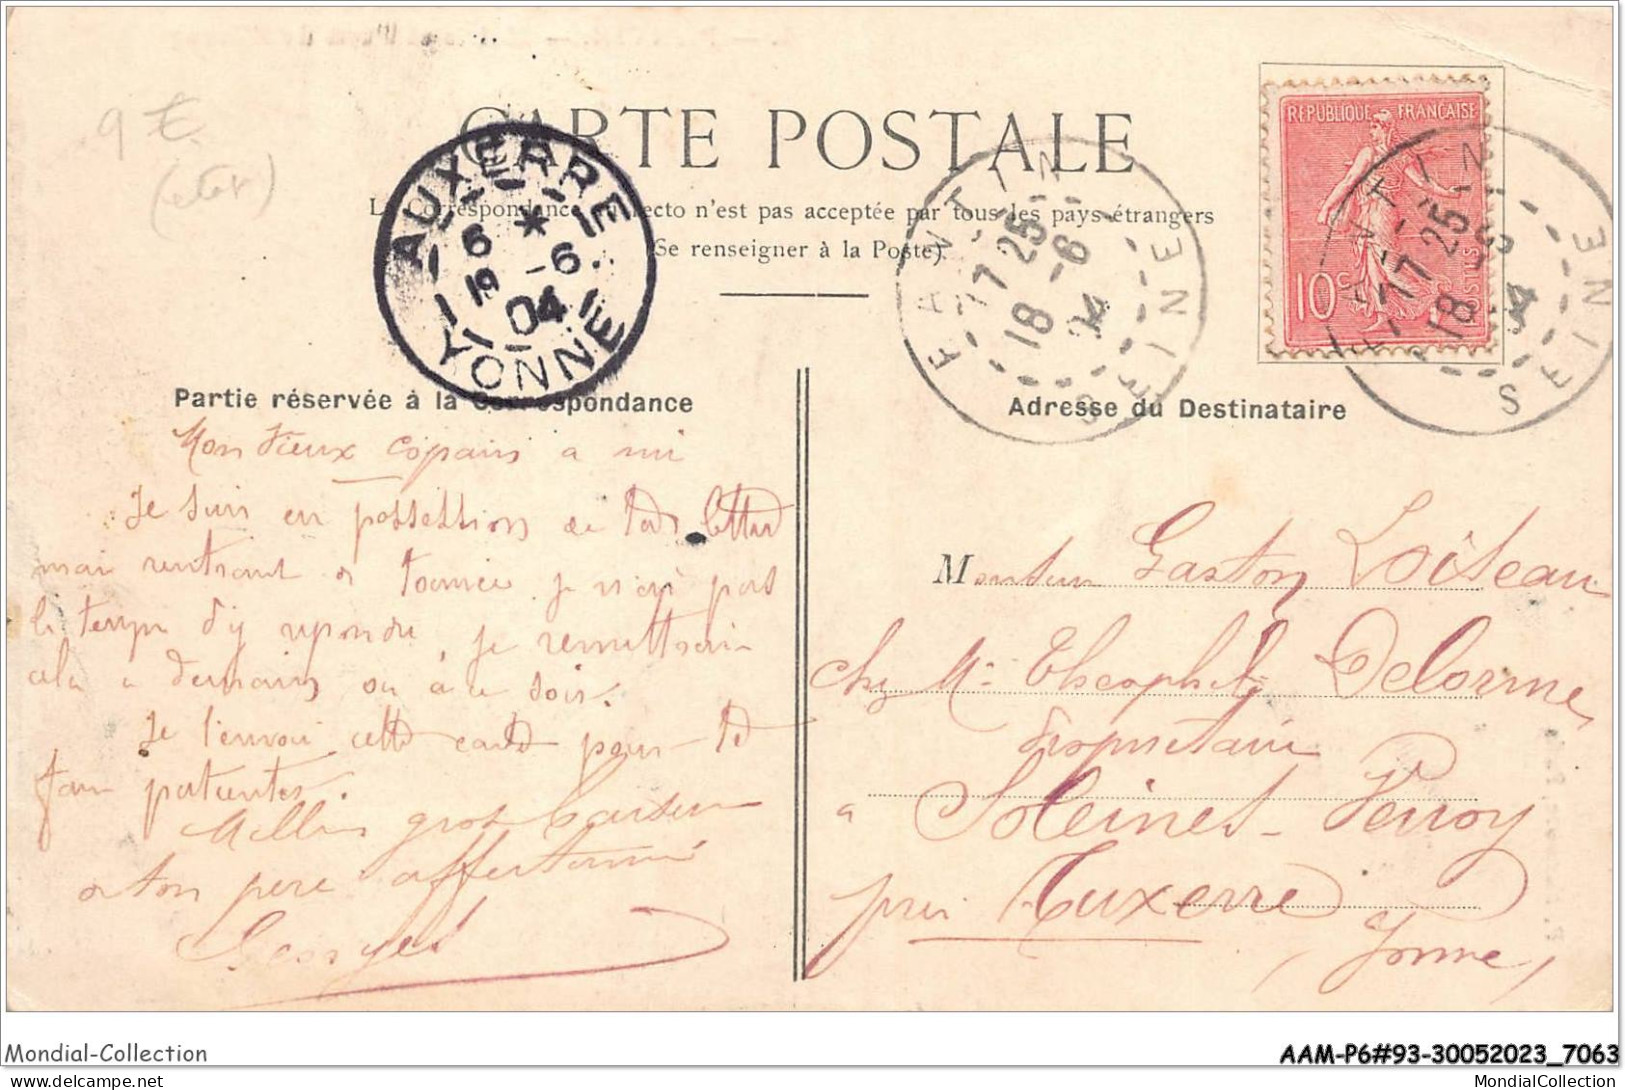 9 €
(état)
CARTE POSTALE
La Correspondance au recto n'est pas acceptée par tous les pays étrangers
(Se renseigner à la Poste).
AUXERRE
6 * 
19 -6
04
YONNE
PANTIN
17 25
18 -6
04
SEINE
RÉPUBLIQUE FRANÇAISE
10c
POSTES
PANTIN
17 25
18 -6
04
SEINE
Partie réservée à la Correspondance
Mon Vieux copain a mi
Je suis en possession de ta lettre
mais rentrant de tournée je n'ai pas
le temps d'y repondre, je remettrai
cela a demain ou à ce soir.
Je t'envoi cette carte pour te
faire patienter.
Meilleurs gros baisers
a ton pere affectionné
Georges
Adresse du Destinataire
Monsieur Gaston Loiseau
chez Mr Theophile Delorme
Propriétaire
a Soleines - Venoy
près Auxerre
Yonne
Mondial-Collection
AAM-P6#93-30052023_7063
MondialCollection